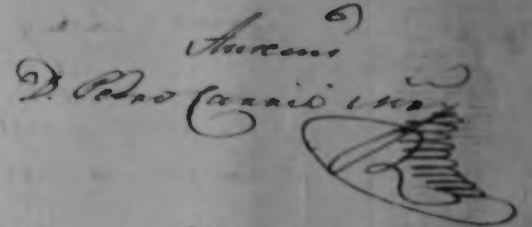 Antemi
Dn Pedro Carrió